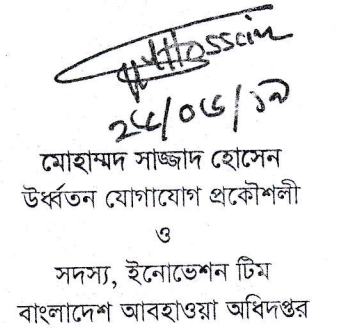 Hossain
মোহাম্মদ সাজ্জাদ হোসেন
উর্ধ্বতন যোগাযোগ প্রকৌশলী
ও
সদস্য, ইনোভেশন টিম
বাংলাদেশ আবহাওয়া অধিদপ্তর